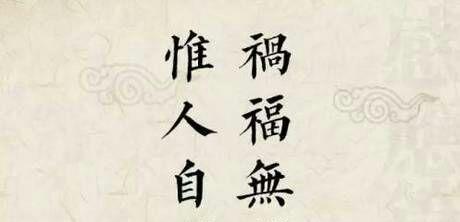 禍福無
惟人自